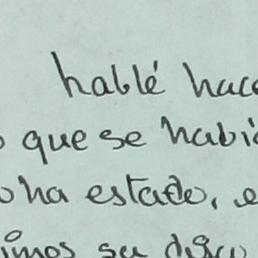 hablé hace
que se habí
ha estado, e
imos su